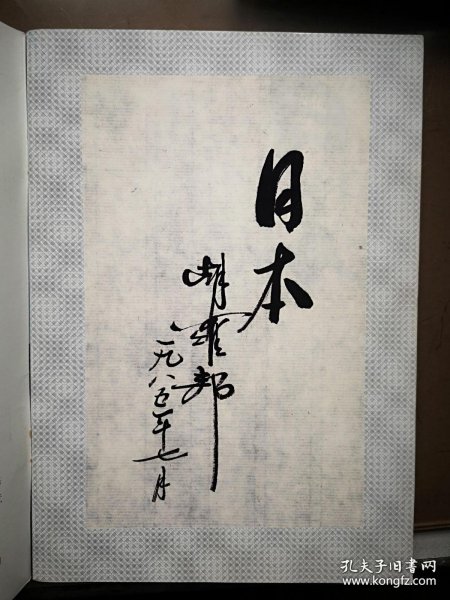 日本
胡耀邦
一九八五年七月
孔夫子旧书网
www.kongfz.com